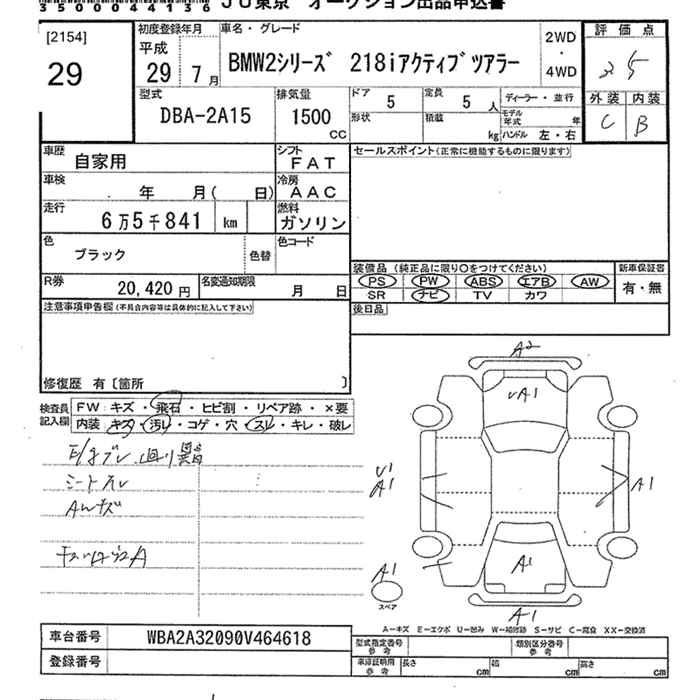 35000044136 JU東京 オークション出品申込書
[2154]
29
初度登録年月
平成
29年 7月
車名・グレード
BMW2シリーズ 218iアクティブツアラー
2WD
・
4WD
評価点
外装 内装
C B
型式
DBA-2A15
排気量
1500
CC
ドア 5
定員 5 人
形状
積載 kg
ディーラー・並行
モデル年式 年
ハンドル 左・右
車歴
自家用
シフト
FAT
車検
年 月( 日)
冷房
AAC
走行
6万5千841 km
燃料
ガソリン
色
ブラック
色替
色コード
R券
20,420円
名変通知期限
月 日
セールスポイント(正常に機能するものに限ります)
装備品 (純正品に限り○をつけてください)
PS PW ABS エアB AW
SR ナビ TV カワ
新車保証書
有・無
後日品
注意事項申告欄(不具合内容等は具体的に記入して下さい)
修復歴 有〔箇所 〕
検査員記入欄
FW キズ・飛石・ヒビ割・リペア跡・×要
内装 キズ・汚レ・コゲ・穴・スレ・キレ・破レ
シートスレ
AWキズ
A2
A1
A1
A1
A1
A1
スペア
A1
A1
A-キズ E-エクボ U-凹み W-補修跡 S-サビ C-腐食 XX-交換済
車台番号 WBA2A32090V464618
登録番号
型式指定番号 参考
類別区分番号 参考
車庫証明用 参考
長さ cm 幅 cm 高さ cm